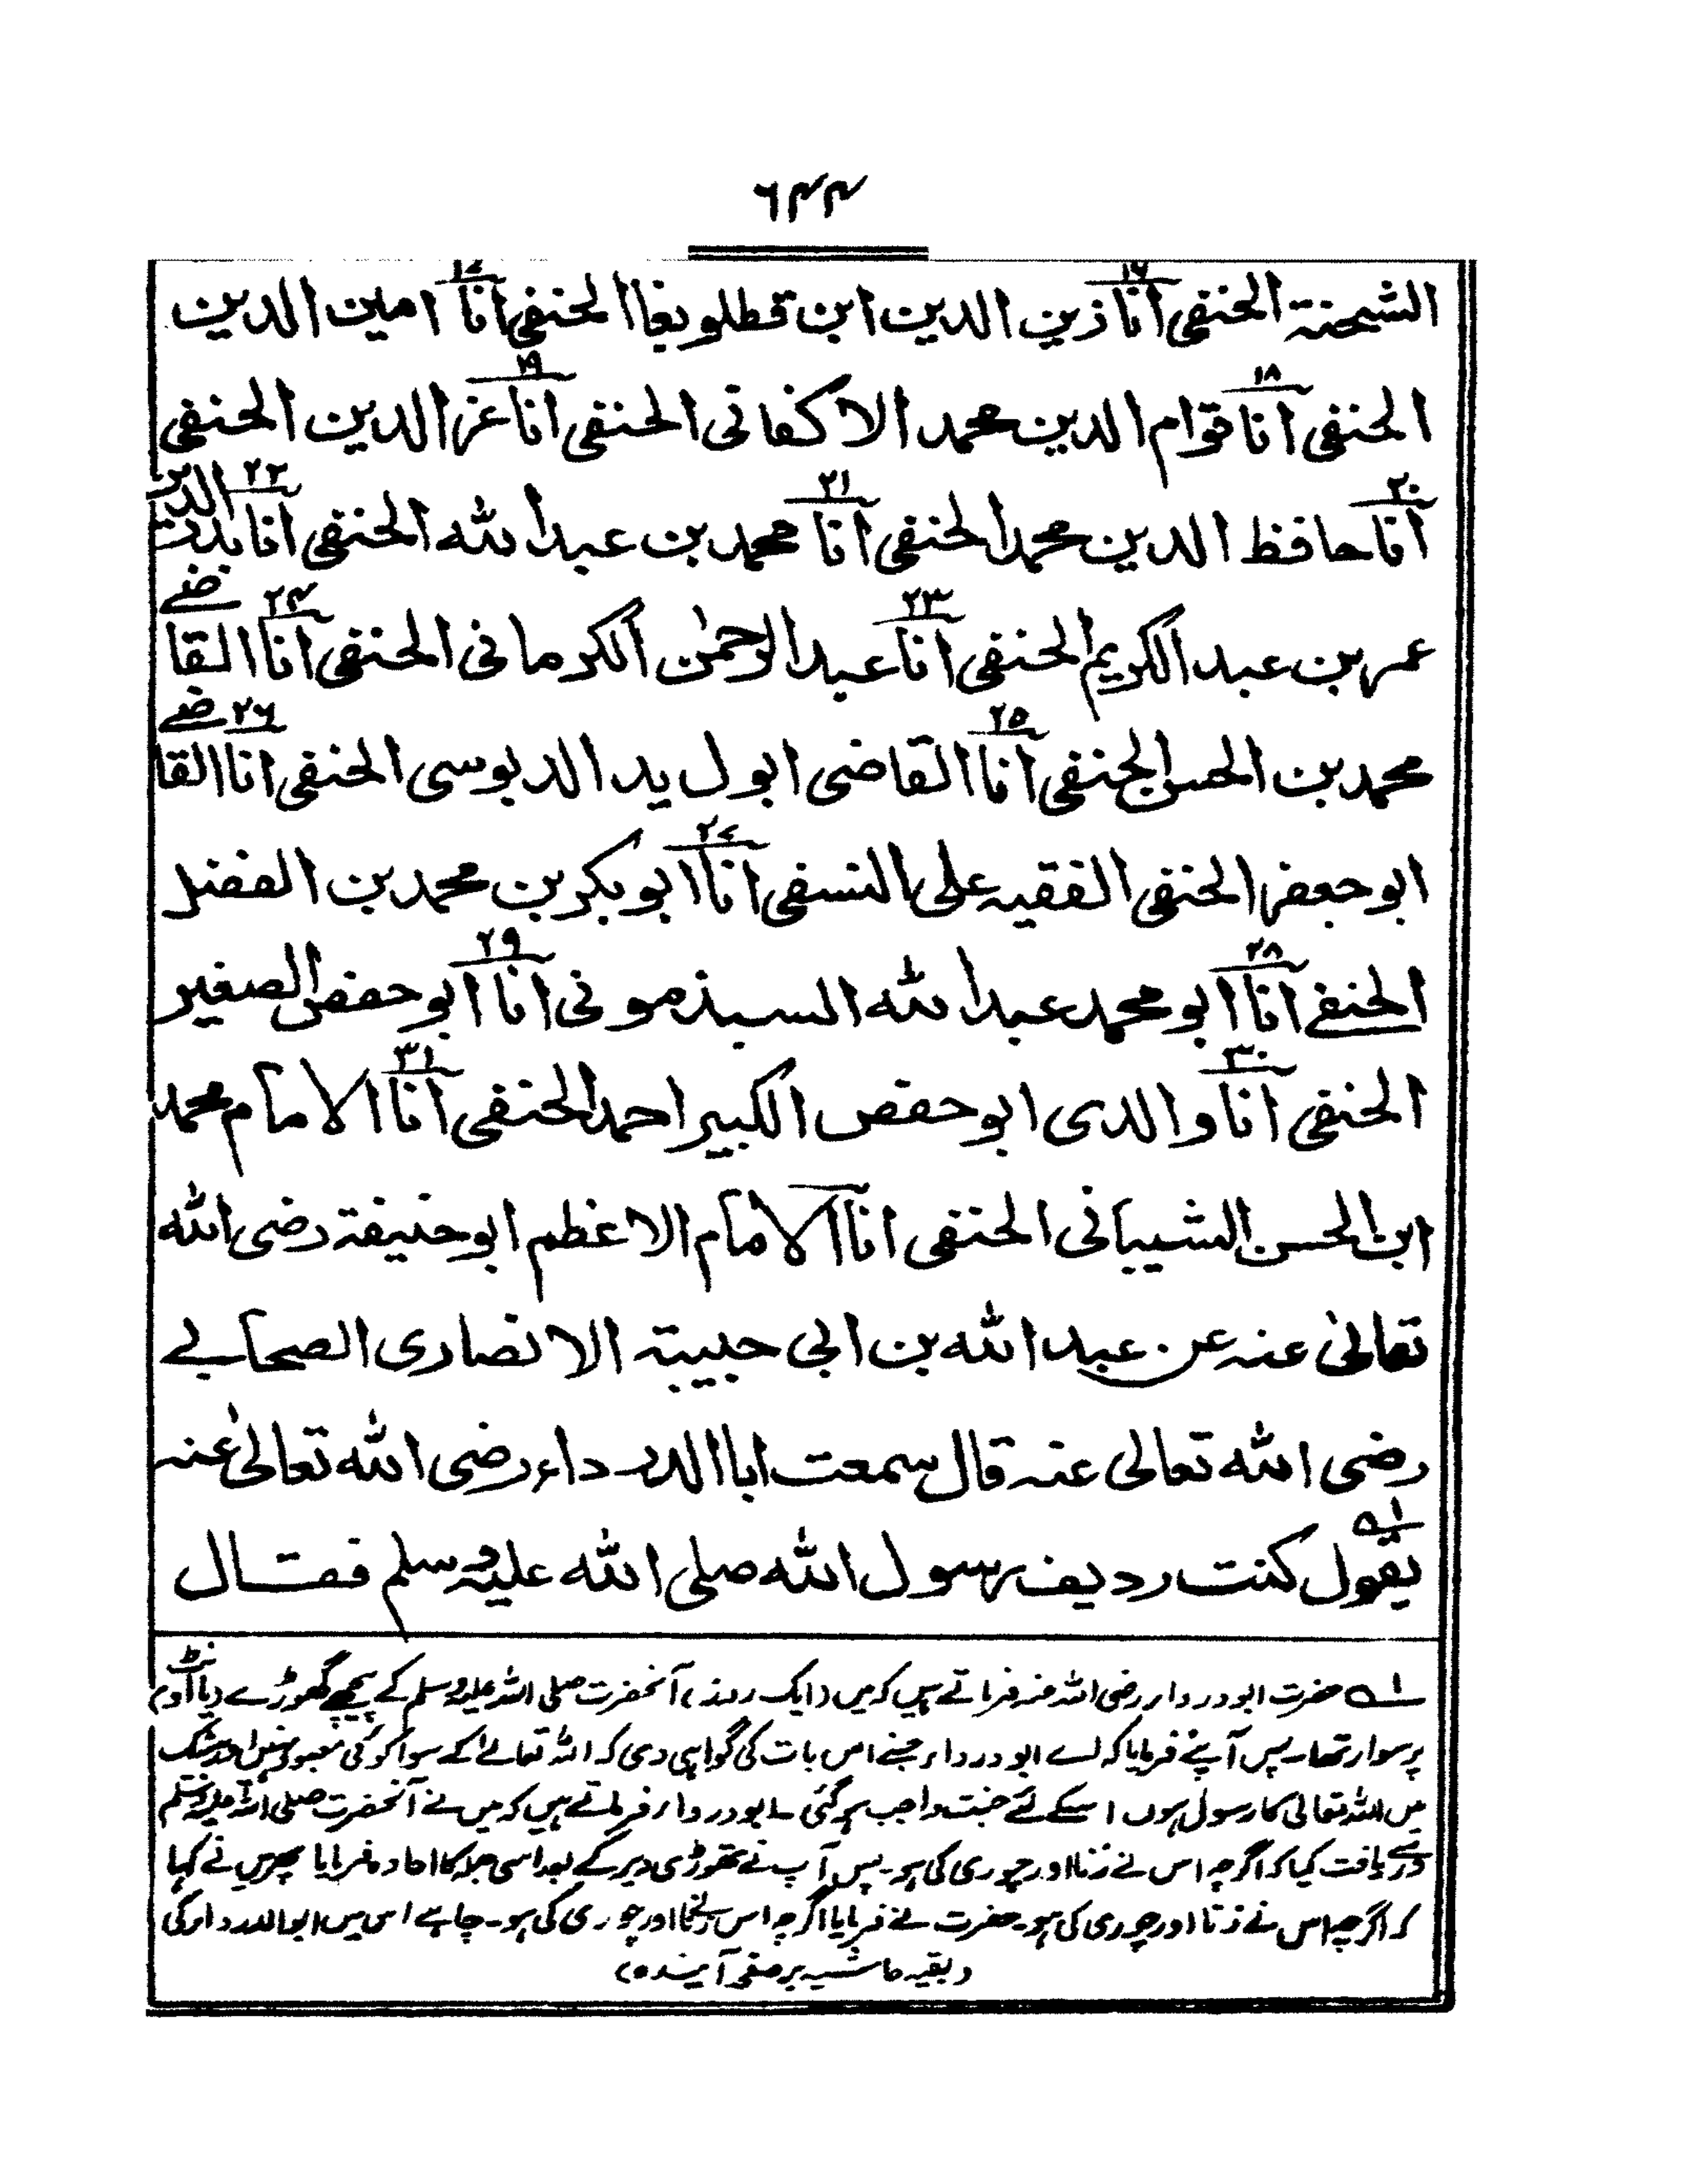 ٦۴۴
الشحنة الحنفی انا ۱۶ زین الدین ابن قطلوبغا الحنفی انا ۱۷ امین الدین
الحنفی انا ۱۸ قوام الدین محمد الاکفانی الحنفی انا ۱۹ عز الدین الحنفی
۲۰ انا حافظ الدین محمد الحنفی انا ۲۱ محمد بن عبد الله الحنفی انا ۲۲ بدر الدین
عمر بن عبد الکریم الحنفی انا ۲۳ عبد الرحمٰن الکرمانی الحنفی انا ۲۴ القاضے
محمد بن الحسن الحنفی انا ۲۵ القاضی ابو ل ید الدبوسی الحنفی انا ۲۶ القاضے
ابو جعفر الحنفی الفقیه علی النسفی انا ۲۷ ابو بکر بن محمد بن الفضل
الحنفے انا ۲۸ ابو محمد عبد الله السبذمونی انا ۲۹ ابو حفص الصغیر
الحنفی انا ۳۰ والدی ابو حفص الکبیر احمد الحنفی انا ۳۱ الامام محمد
ابن الحسن الشیبانی الحنفی انا الامام الاعظم ابو حنیفة رضی الله
تعالیٰ عنه عن عبد الله بن ابی حبیبة الانصاری الصحابے
رضی الله تعالی عنه قال سمعت ابا الدرداء رضی الله تعالیٰ عنه
یقول ۱؎ کنت ردیف رسول الله صلی الله علیه وسلم فقال
۱؎ حضرت ابو دردار رضی اللہ عنہ فرماتے ہیں کہ میں (ایک روز) آنحضرت صلی اللہ علیہ وسلم کے پیچھے گھوڑے یا اونٹ
پر سوار تھا۔ پس آپنے فرمایا کہ اے ابو درداء جسنے اس بات کی گواہی دی کہ اللہ تعالےٰ کے سوا کوئی معبود نہیں اور بیشک
میں اللہ تعالی کا رسول ہوں اسکے لئے جنت واجب ہوگئی۔ ابو درداء فرماتے ہیں کہ میں نے آنحضرت صلی اللہ علیہ وسلم
سے دریافت کیا کہ اگرچہ اس نے زنا اور چوری کی ہو۔ پس آپ نے تھوڑی دیر کے بعد اسی جملہ کا اعادہ فرمایا پھر میں نے کہا
کہ اگرچہ اس نے زنا اور چوری کی ہو۔ حضرت نے فرمایا اگرچہ اس نے زنا اور چوری کی ہو۔ چاہے اس میں ابوالدرداء کی
(بقیہ حاشیہ بر صفحہ آیندہ)